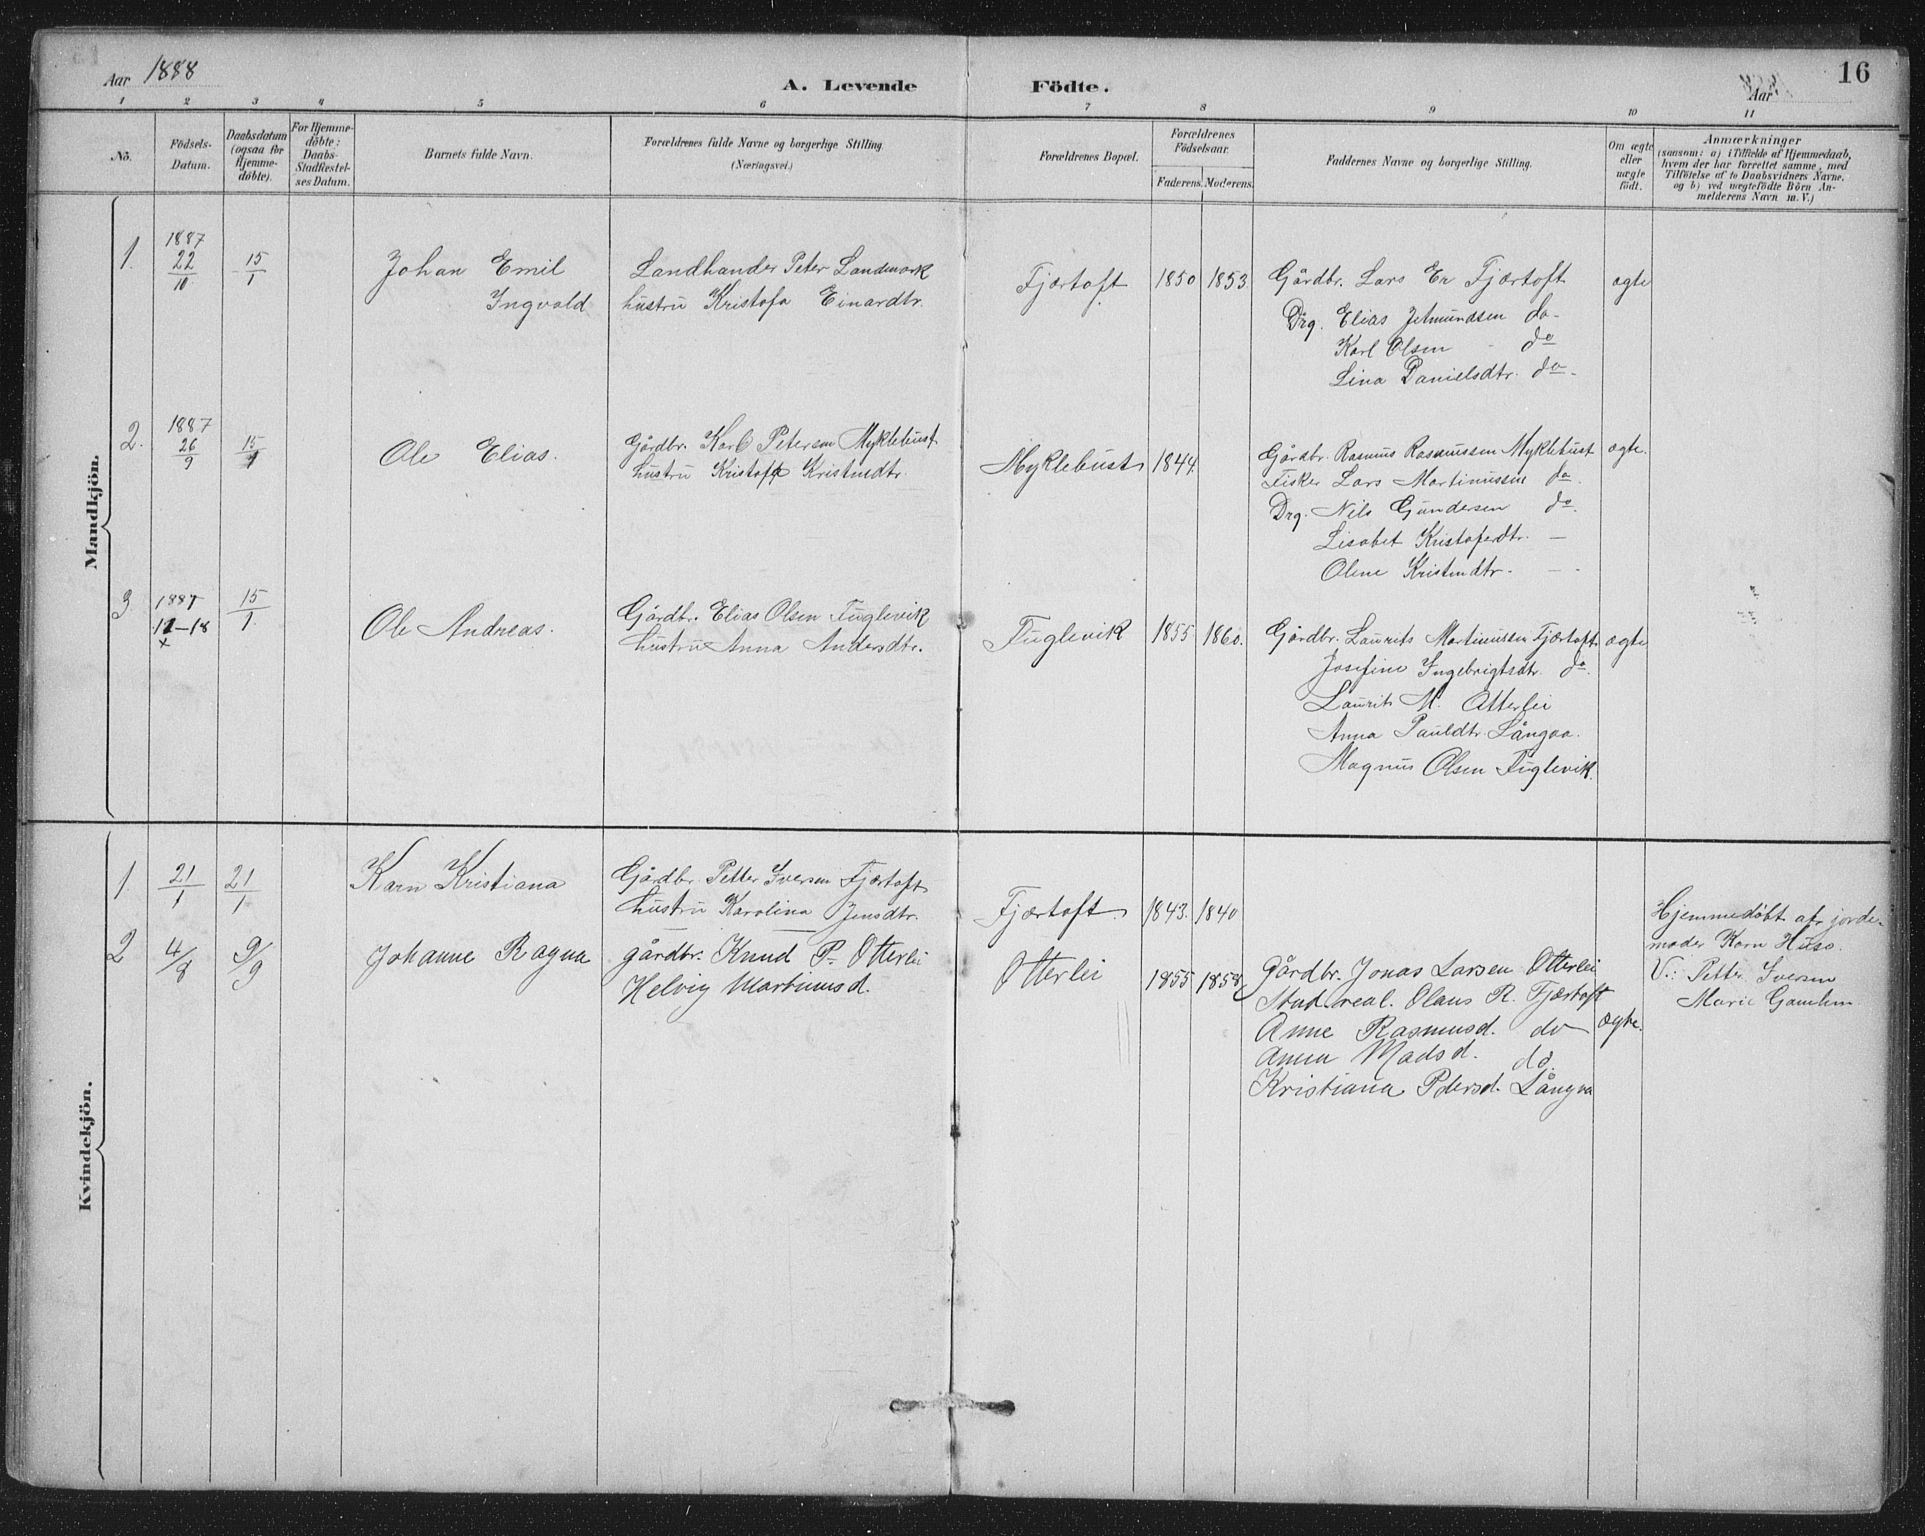 Aar 1888
A. Levende Födte.
Aar
16
1 2 3 4 5 6 7 8 9 10 11
No.
Födsels-
Datum.
Daabsdatum
(ogsaa for
Hjemme-
döbte).
For Hjemme-
döbte:
Daabs-
Stadfæstel-
ses Datum.
Barnets fulde Navn.
Forældrenes fulde Navne og borgerlige Stilling
(Næringsvei.)
Forældrenes Bopæl.
Forældrenes
Födselsaar.
Faderens. Moderens.
Faddernes Navne og borgerlige Stilling.
Om ægte
eller
uægte
födt.
Anmærkninger
(saasom: a) i Tilfælde af Hjemmedaab,
hvem der har forrettet samme, med
Tilföielse af to Daabsvidners Navne,
og b) ved uægtefödte Börn An-
melderens Navn m. V.)
Mandkjön.
1.
1887
22
10
15
1
Johan Emil
Ingvald
Landhander Peter Landmark
hustru Kristofa Einardtr.
Fjærtoft
1850 1853.
Gårdbr. Lars Er Fjærtoft
Drg. Elias Jetmundsen do-
Karl Olsen - do
Lina Danielsdtr. do-
ægte
2.
1887
26
9
15
1
Ole Elias.
Gårdbr. Karl Petersen Myklebust
hustru Kristofa Kristendtr.
Myklebust
1844.
Gårdbr. Rasmus Rasmussen Myklebust
Fisker Lars Martinussen do.
Drg. Nils Gundersen do.
Lisabet Kristofedtr. —
Oline Kristendtr. - —
ægte.
3
1887
11-18
x
15
1
Ole Andreas.
Gårdbr. Elias Olsen Fuglevik
hustru Anna Andersdtr.
Fuglevik
1855. 1860.
Gårdbr. Laurits Martinussen Fjærtoft
Josefine Ingebrigtsdtr. do.
Laurits M. Otterlei
Anna Pauldtr. Långva.
Magnus Olsen Fuglevik.
ægte
Kvindekjön.
1.
21
1
21
1
Karn Kristiana
Gårdbr. Petter Iversen Fjærtoft
hustru Karolina Jensdtr.
Fjærtoft.
1843. 1840
Hjemmedøbt af jorde-
moder Karn Huse.
V.: Petter Iversen
Marie Gamlem
2
4/8
9/9
Johanne Ragna
gårdbr. Knud P. Otterlei
Helvig Martinusd.
Otterlei
1855 1858
Gårdbr. Jonas Larsen Otterlei
Stud. real. Olaus R. Fjærtoft
Anne Rasmusd. do
Anna Madsd. do.
Kristiana Pdersd. Långva
ægte.